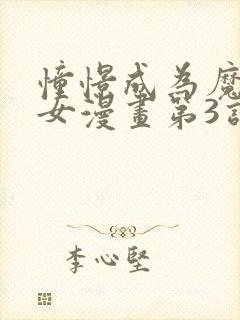 憧憬成為魔
女漫畫第3話
李心堅